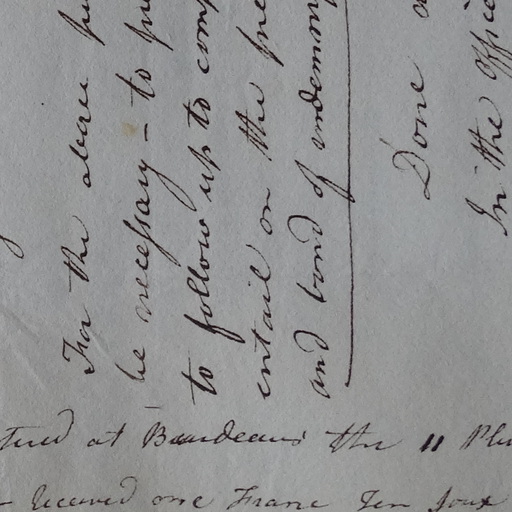 For the above pu
be necessary – to pu
to follow up to comp
entail on the fre
and bond of indemni
Done
In the office
tured at Bourdeaux the 11 Plu
– Received one Franc Ten Soux